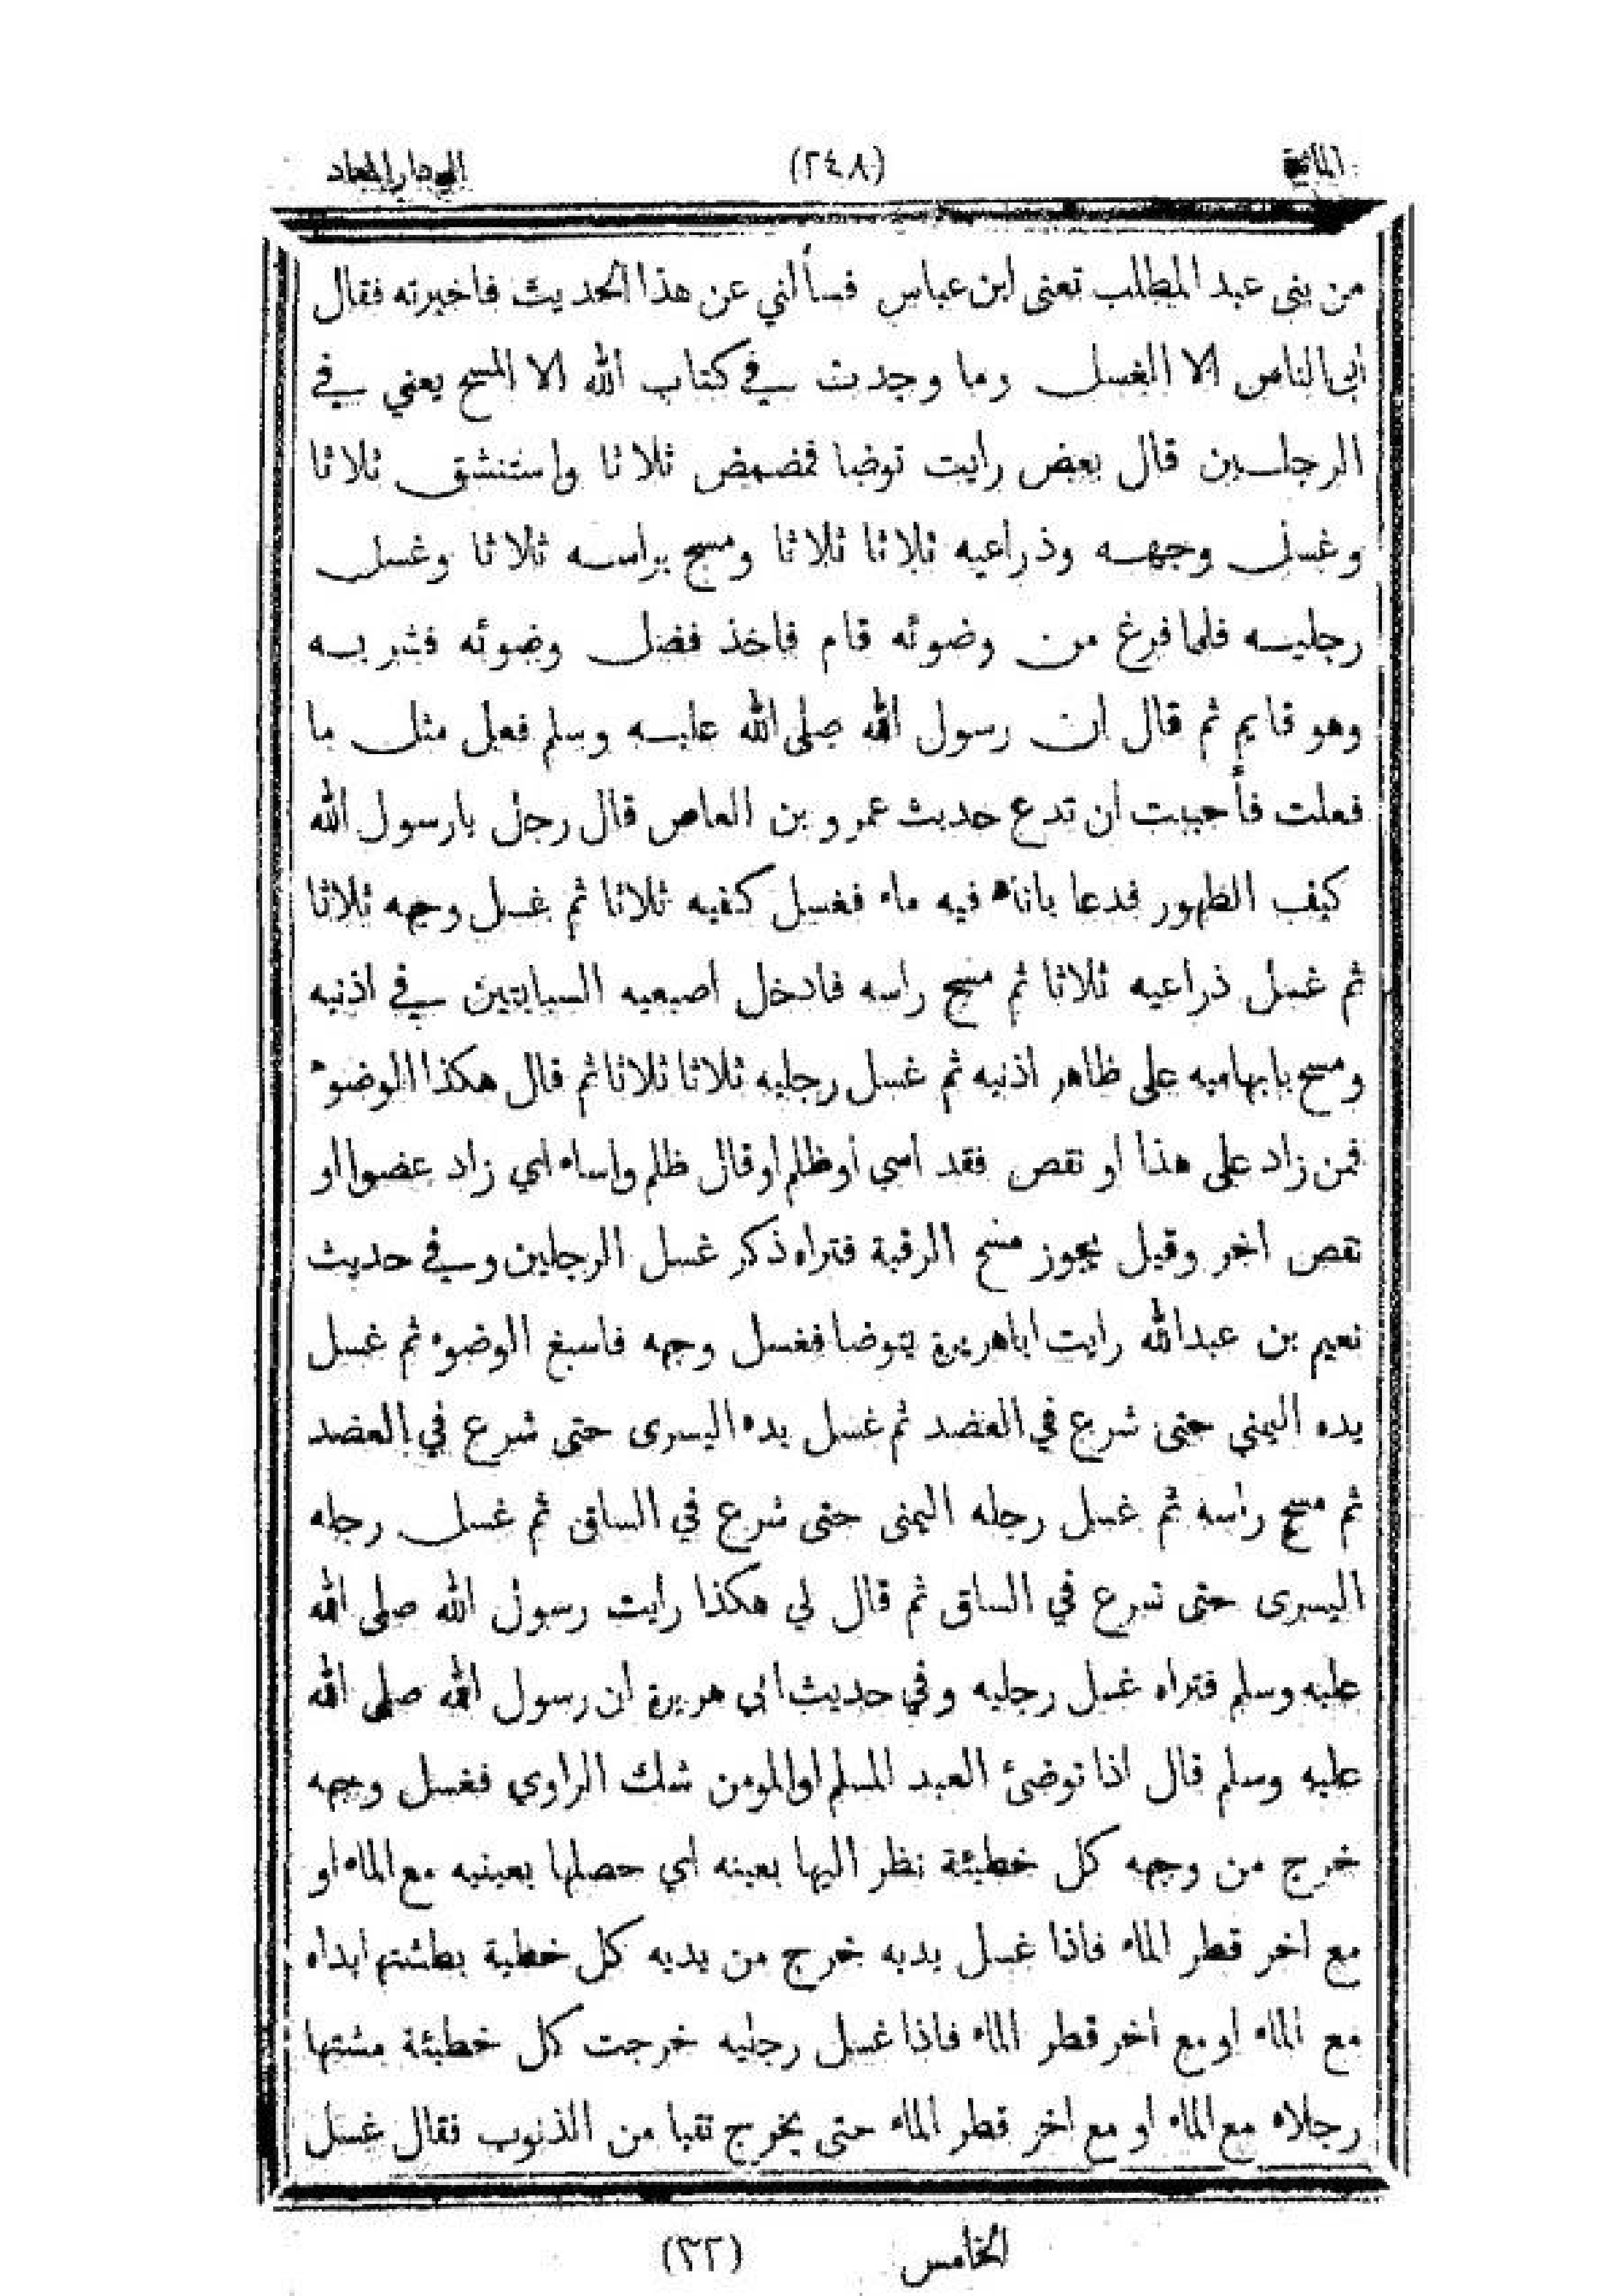 المائدة (٢٤٨) الى دار المعاد
من بنى عبد المطلب تعنى ابن عباس فسألني عن هذا الحديث فاخبرته فقال
ابى الناس الا الغسل وما وجدت في كتاب الله الا المسح يعني في
الرجلين قال بعض رايت توضا فمضمض ثلاثا واستنشق ثلاثا
وغسل وجهه وذراعيه ثلاثا ثلاثا ومسح براسه ثلاثا وغسل
رجليه فلما فرغ من وضوئه قام فاخذ فضل وضوئه فشربه
وهو قايم ثم قال ان رسول الله صلى الله عليه وسلم فعل مثل ما
فعلت فأحببت ان تدع حديث عمرو بن العاص قال رجل يا رسول الله
كيف الطهور فدعا باناء فيه ماء فغسل كفيه ثلاثا ثم غسل وجهه ثلاثا
ثم غسل ذراعيه ثلاثا ثم مسح راسه فادخل اصبعيه السبابتين في اذنيه
ومسح بابهاميه على ظاهر اذنيه ثم غسل رجليه ثلاثا ثلاثا ثم قال هكذا الوضوء
فمن زاد على هذا او نقص فقد اسي أو ظلم او قال ظلم واساء اي زاد عضوا او
نقص اخر وقيل يجوز مسح الرقبة فتراه ذكر غسل الرجلين وفي حديث
نعيم بن عبدالله رايت اباهريرة يتوضا فغسل وجهه فاسبغ الوضوء ثم غسل
يده اليمني حتى شرع في العضد ثم غسل يده اليسرى حتى شرع في العضد
ثم مسح راسه ثم غسل رجله اليمنى حتى شرع في الساق ثم غسل رجله
اليسرى حتى شرع في الساق ثم قال لي هكذا رايت رسول الله صلى الله
عليه وسلم فتراه غسل رجليه وفي حديث ابى هريرة ان رسول الله صلى الله
عليه وسلم قال اذا توضئ العبد المسلم او المومن شك الراوي فغسل وجهه
خرج من وجهه كل خطيئة نظر اليها بعينه اي حصلها بعينيه مع الماء او
مع اخر قطر الماء فاذا غسل يديه خرج من يديه كل خطية بطشتها يداه
مع الماء او مع اخر قطر الماء فاذا غسل رجليه خرجت كل خطيئة مشتها
رجلاه مع الماء او مع اخر قطر الماء حتى يخرج نقيا من الذنوب فقال غسل
الخامس (٣٢)